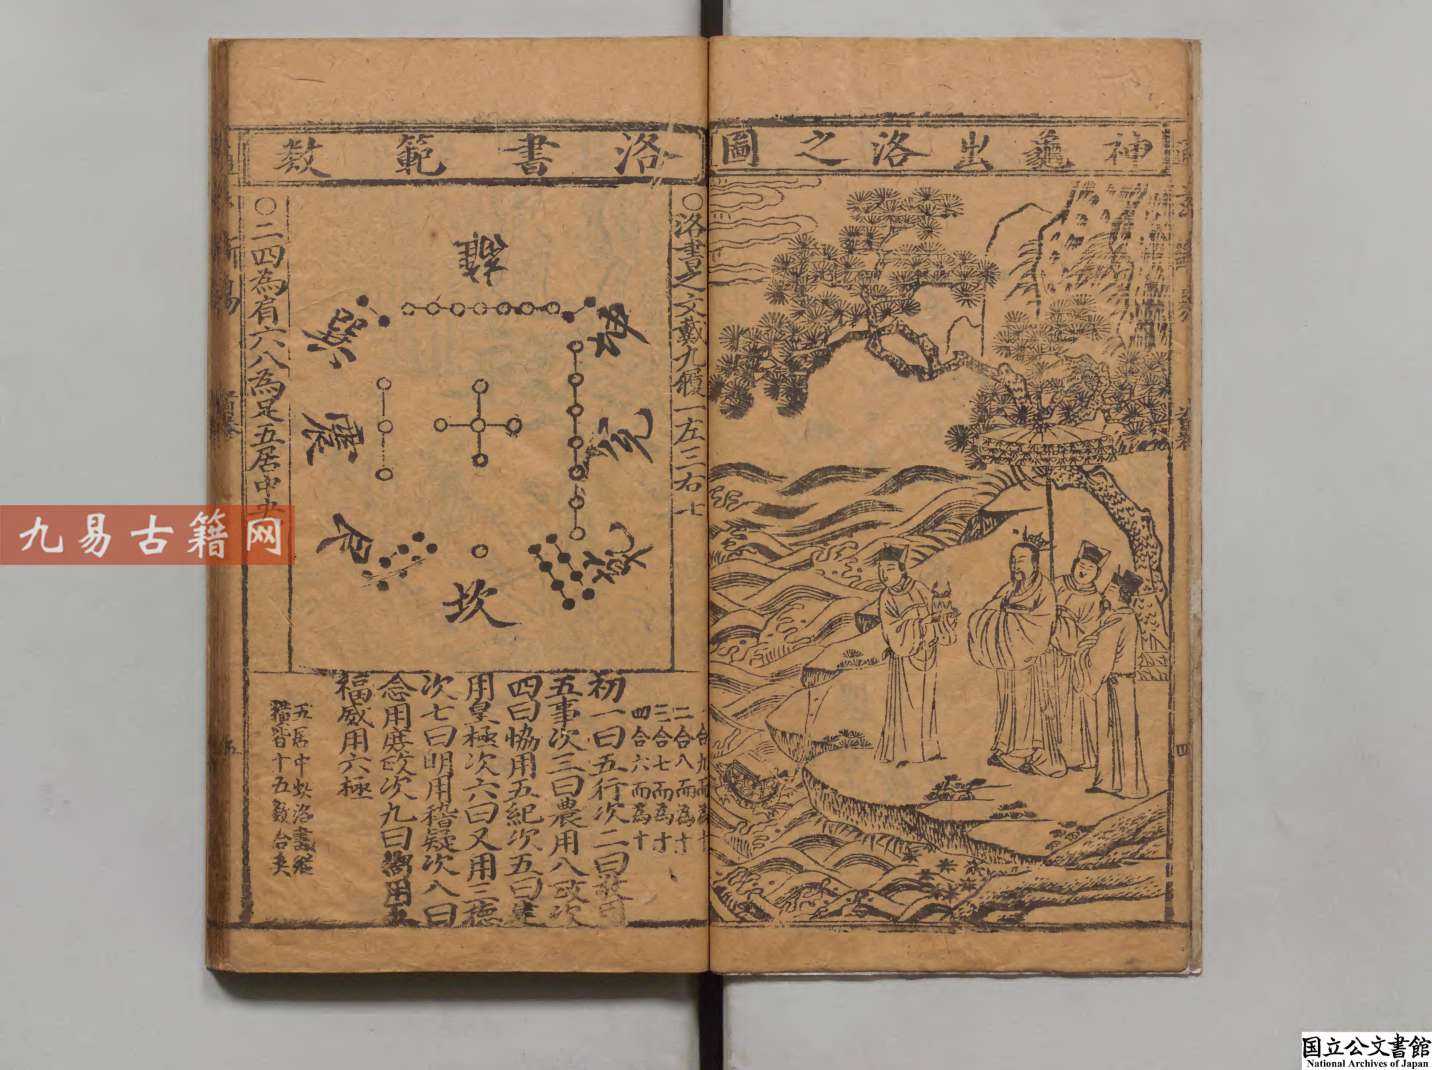 神龜出洛之圖
洛書範数
○洛書之文戴九履一左三右七
離
坤
巽
兌
震
艮
坎
○二四為肩六八為足五居中央
二合八而為十
三合七而為十
四合六而為十
初一曰五行次二曰敬用
五事次三曰農用八政次
四曰恊用五紀次五曰建
用皇極次六曰乂用三德
次七曰明用稽疑次八曰
念用庶政次九曰嚮用五
福威用六極
五居中央洛書縱
橫皆十五數合矣
四
九易古籍网
国立公文書館
National Archives of Japan